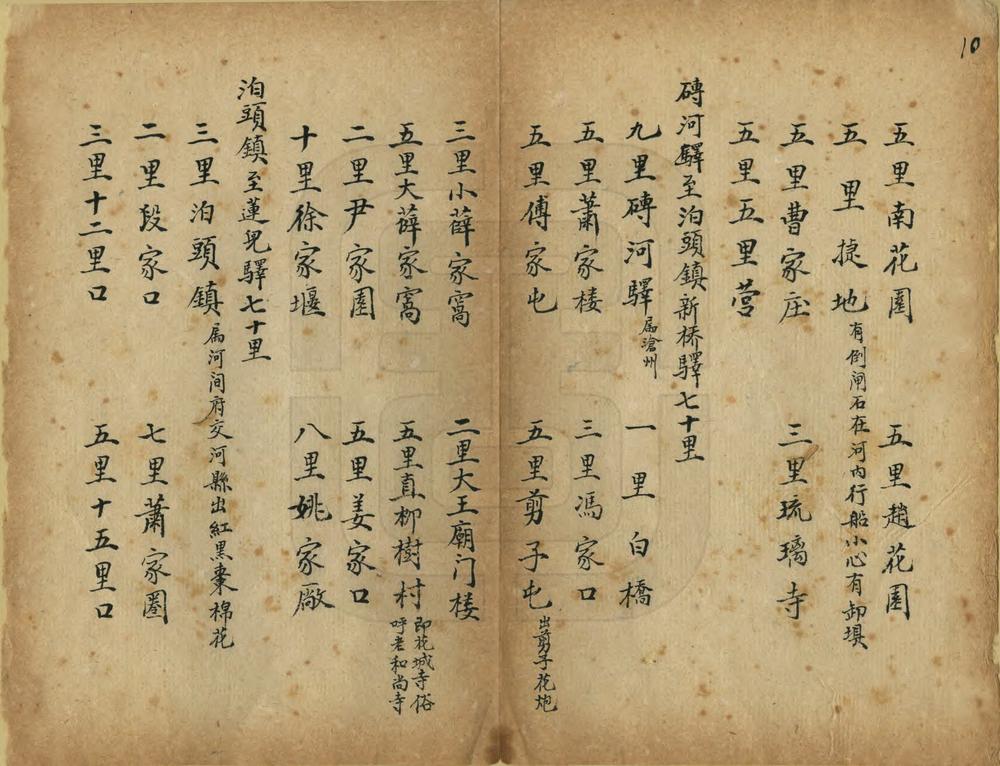 10
五里南花園　五里趙花園
五里捷地有倒闸石在河内行船小心有卸塤
五里曹家庄　三里琉璃寺
五里五里营
磚河驛至泊頭鎮新桥驛七十里
九里磚河驛属滄州　一里白橋
五里蕭家楼　三里馮家口
五里傅家屯　五里剪子屯出剪子花炮
三里小薛家窩　二里大王廟门楼
五里大薛家窩　五里直柳樹村即花城寺俗呼老和尚寺
二里尹家園　五里姜家口
十里徐家堰　八里姚家廠
泊頭鎮至蓮兒驛七十里
三里泊頭鎮属河间府交河縣出紅黑棗棉花
二里段家口　七里蕭家圈
三里十二里口　五里十五里口